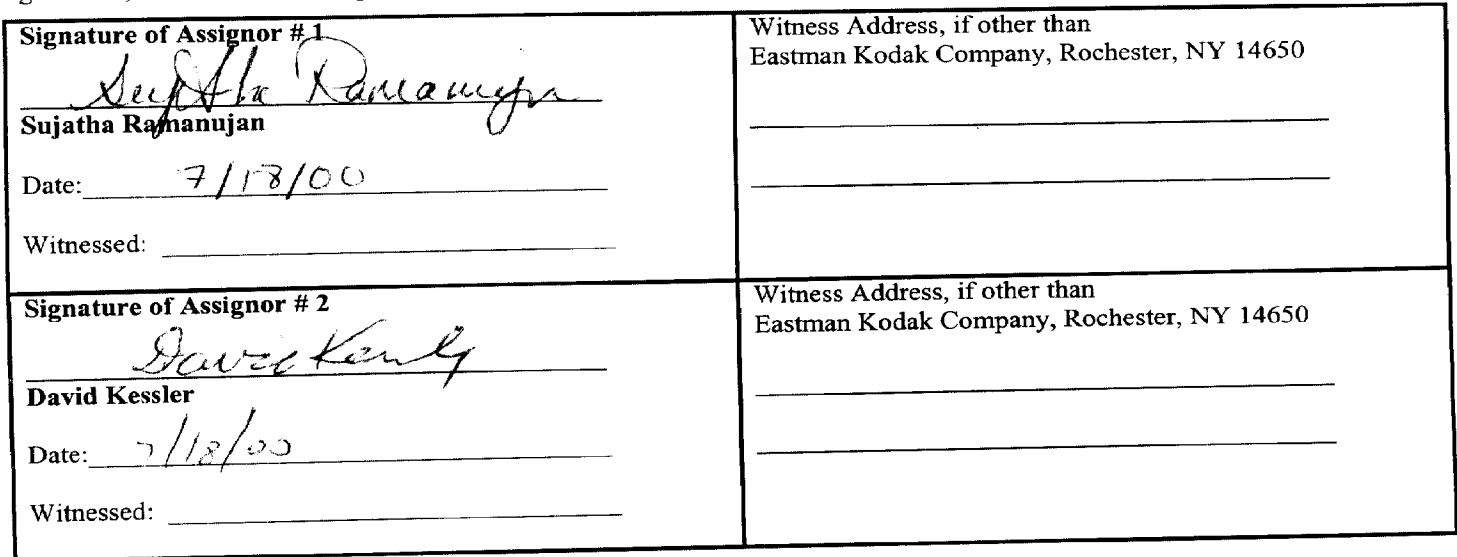 Signature of Assignor # 1
Sujatha Ramanujan
Sujatha Ramanujan
Date: 7/18/00
Witnessed:
Witness Address, if other than
Eastman Kodak Company, Rochester, NY 14650
Signature of Assignor # 2
David Kessler
David Kessler
Date: 7/18/00
Witnessed:
Witness Address, if other than
Eastman Kodak Company, Rochester, NY 14650